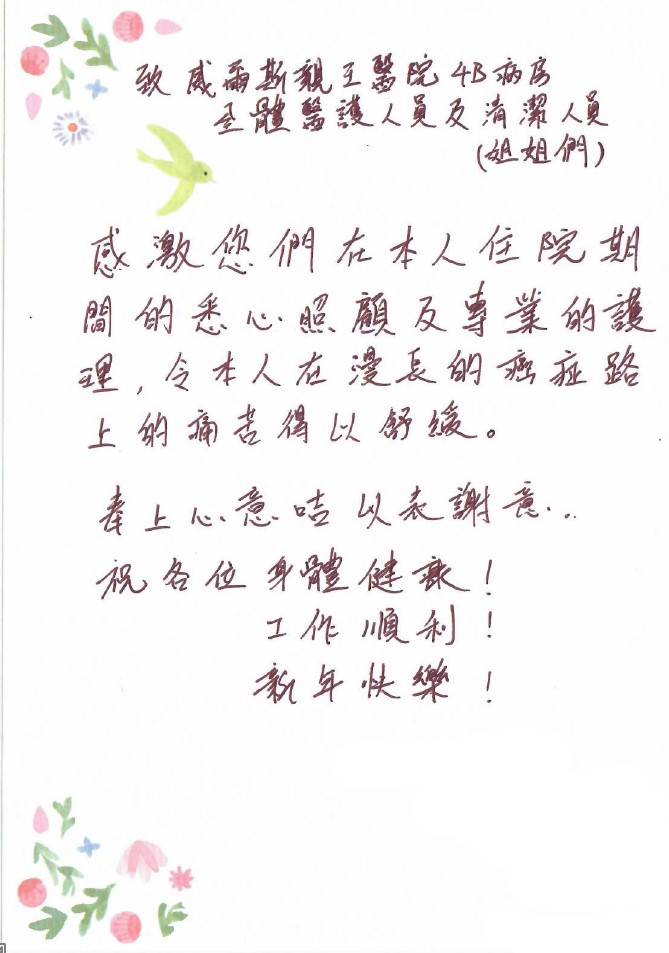 致威爾斯親王醫院4B病房
全體醫護人員及清潔人員
(姐姐們)
感激您們在本人住院期
間的悉心照顧及專業的護
理,令本人在漫長的癌症路
上的痛苦得以舒緩。
奉上心意咭以表謝意...
祝各位身體健康!
工作順利!
新年快樂!